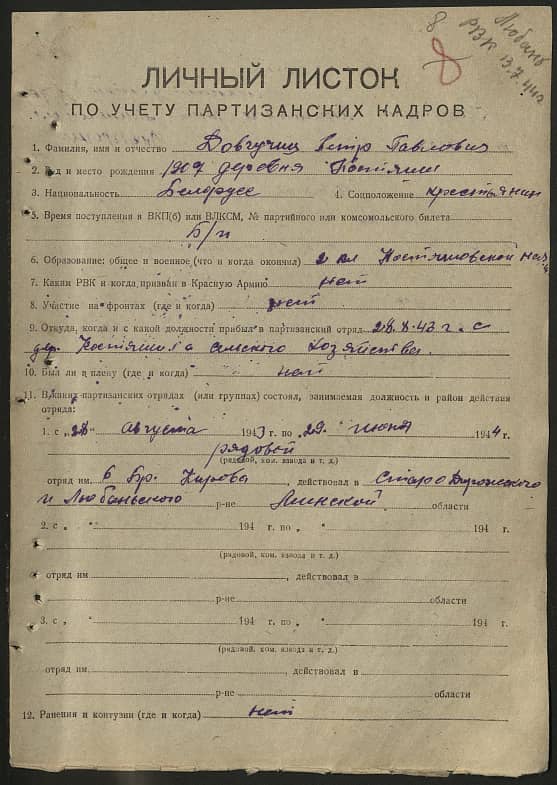 8
Любань
РВК 13.7.44 г.
8
ЛИЧНЫЙ ЛИСТОК
ПО УЧЕТУ ПАРТИЗАНСКИХ КАДРОВ
1. Фамилия, имя и отчество Довгучиц Петр Павлович
2. Год и место рождения 1909 деревня
3. Национальность Белорусс 4. Соцположение крестьянин
5. Время поступления в ВКП(б) или ВЛКСМ, № партийного или комсомольского билета
Б/п
6. Образование: общее и военное (что и когда окончил) 2 кл
7. Каким РВК и когда призван в Красную Армию нет
8. Участие на фронтах (где и когда) нет
9. Откуда, когда и с какой должности прибыл в партизанский отряд 28.8.43 г. с
дер. сельского хозяйства.
10. Был ли в плену (где и когда) нет
11. В каких партизанских отрядах (или группах) состоял, занимаемая должность и район действия
отряда:
1. с „28“ августа 1943 г. по „29“ июня 1944 г.
рядовой
(рядовой, ком. взвода и т. д.)
отряд им. 6 бр. Кирова, действовал в Старо Дорожского
и Любаньского р-не Минской области
2. с „ “ 194 г. по „ “ 194 г.
(рядовой, ком. взвода и т. д.)
отряд им , действовал в
р-не области
3. с „ “ 194 г. по „ “ 194 г.
(рядовой, ком. взвода и т. д.)
отряд им. , действовал и
р-не области
12. Ранения и контузии (где и когда) нет